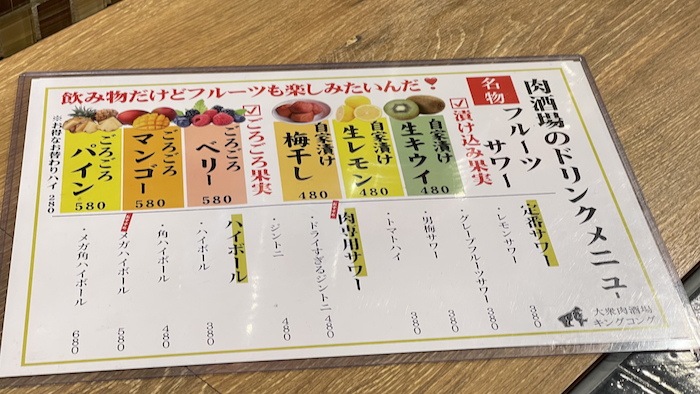 飲み物だけどフルーツも楽しみたいんだ❣
肉酒場のドリンクメニュー
名物
フルーツ
サワー
☑漬け込み果実
自家漬け
生キウイ
480
自家漬け
生レモン
480
自家漬け
梅干し
480
☑ごろごろ果実
ごろごろ
ベリー
580
ごろごろ
マンゴー
580
ごろごろ
パイン
580
※お得なお替わりハイ 280
定番サワー
・レモンサワー 380
・グレープフルーツサワー 380
・男梅サワー 380
・トマトハイ 380
肉専用サワー
・ドライすぎるジントニ 480
・ジントニ 480
ハイボール
・ハイボール 380
・角ハイボール 480
・メガハイボール 580
・メガ角ハイボール 680
大衆肉酒場
キングコング